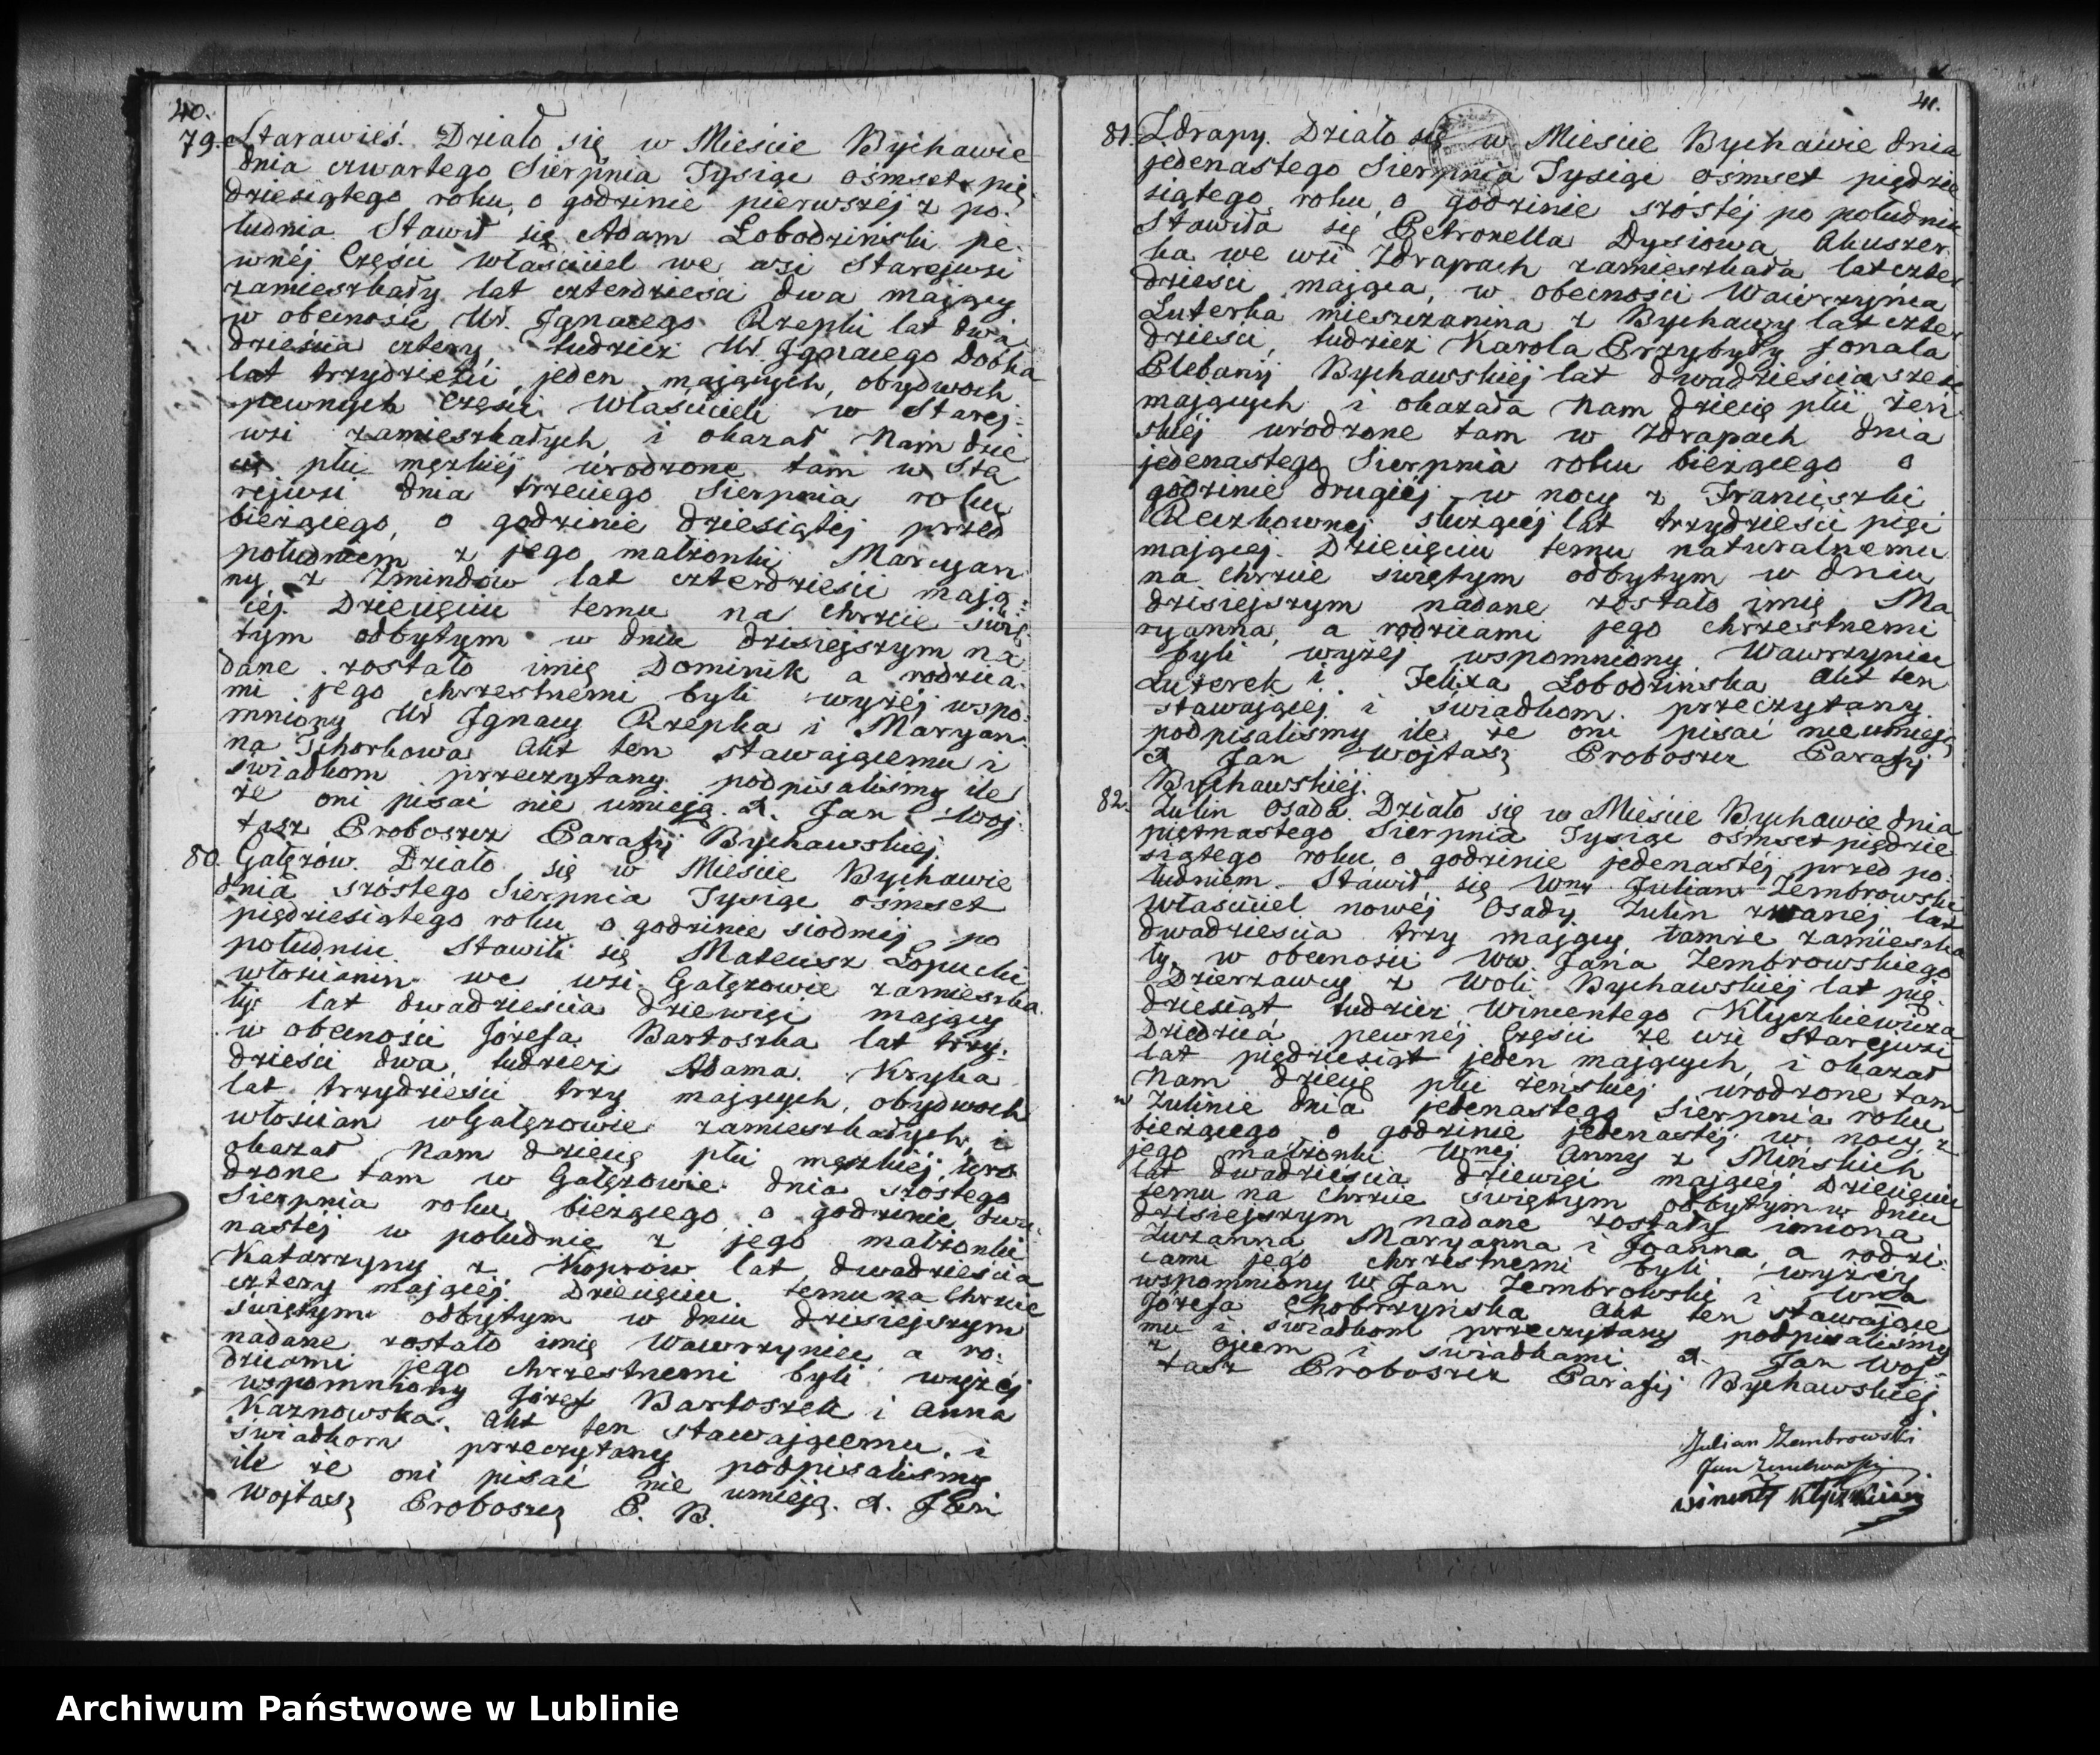 40.
79. Starawieś. Działo się w Mieście Bychawie
dnia czwartego Sierpnia Tysiąc ośmset pię
dziesiątego roku, o godzinie pierwszej z po-
łudnia. Stawił się Adam Łobodziński pe-
wnéj Części właściciel we wsi Starejwsi
zamieszkały lat czterdzieści dwa mający
w obecności Ur. Ignacego Rzepki lat dwa
dzieścia cztery, tudzież Ur. Ignacego Dobka
lat trzydzieści jeden mających, obydwóch
pewnych Części Właścicieli w Starej-
wsi zamieszkałych i okazał Nam dzie
cię płci męzkiéj, urodzone tam w Sta
rejwsi dnia trzeciego Sierpnia roku
bieżącego, o godzinie dziesiątej przed
południem z jego małżonki Maryan
ny z Zmindów lat czterdzieści mają-
céj. Dziecięciu temu na chrzcie świę-
tym odbytym w dniu dzisiejszym na
dane zostało imię Dominik a rodzica-
mi jego chrzestnemi byli wyżéj wspo-
mniony Ur Ignacy Rzepka i Maryan-
na Tchorkowa Akt ten stawającemu i
świadkom przeczytany podpisaliśmy ile
że oni pisać nie umieją. X. Jan Woj-
tasz Proboszcz Parafij Bychawskiej.
80. Gałęzów. Działo się w Mieście Bychawie
dnia szóstego Sierpnia Tysiąc ośmset
piędziesiątego roku o godzinie siódmej po
południu. Stawił się Mateusz Łopucki
włościanin we wsi Gałęzowie zamieszka-
ły lat dwadzieścia dziewięć mający
w obecności Józefa Bartoszka lat trzy-
dzieści dwa, tudzież Adama Kryka
lat trzydzieści trzy mających, obydwóch
włościan w Gałęzowie zamieszkałych, i
okazał Nam dziecię płci męzkiéj uro
dzone tam w Gałęzowie dnia szóstego
Sierpnia roku bieżącego o godzinie dwu-
nastéj w południe z jego małżonki
Katarzyny z Koprów lat dwadzieścia
cztery mającéj. Dziecięciu temu na Chrzcie
świętym odbytym w dniu dzisiejszym
nadane zostało imię Wawrzyniec a ro-
dzicami jego chrzestnemi byli wyżéj
wspomniony Józef Bartoszek i Anna
Kaznowska. Akt ten stawającemu i
świadkom przeczytany podpisaliśmy
ile że oni pisać nie umieją. X. Jan
Wojtasz Proboszcz P. B.
41.
81. Zdrapy. Działo się w Mieście Bychawie dnia
jedenastego Sierpnia Tysiąc ośmset piędzie
siątego roku, o godzinie szóstéj po południu
Stawiła się Petronella Dysiowa Akuszer-
ka we wsi Zdrapach zamieszkała lat czter
dzieści mająca, w obecności Wawrzyńca
Luterka mieszczanina z Bychawy lat czter-
dzieści, tudzież Karola Przybyły fornala
Plebanij Bychawskiej lat dwadzieścia sześć
mających i okazała Nam dziecię płci żeń
skiéj urodzone tam w Zdrapach dnia
jedenastego Sierpnia roku bieżącego o
godzinie drugiéj w nocy z Franciszki
Reczkownej służącéj lat trzydzieści pięć
mającéj. Dziecięciu temu naturalnemu
na chrzcie świętym odbytym w dniu
dzisiejszym nadane zostało imię Ma
ryanna, a rodzicami jego chrzestnemi
byli wyżej wspomniony Wawrzyniec
Luterek i Felixa Łobodzińska Akt ten
stawającéj i świadkom przeczytany
podpisaliśmy ile że oni pisać nieumieją
X Jan Wojtasz Proboszcz Parafij
Bychawskiej.
82. Zulin Osada. Działo się w Mieście Bychawie dnia
piętnastego Sierpnia Tysiąc ośmset piędzie
siątego roku o godzinie jedenastéj przed po-
łudniem. Stawił się Wny Julian Zembrowski
Właściciel nowéj Osady Zulin zwanéj lat
dwadzieścia trzy mający, tamże zamieszka
ły, w obecności Ww Jana Zembrowskiego
Dzierżawcy z Woli Bychawskiéj lat pię-
dziesiąt tudzież Wincentego Kłyczkiewicza
Dziedzica pewnéj Części ze wsi Starejwsi
lat pięćdziesiąt jeden mających, i okazał
Nam dziecię płci żeńskiej urodzone tam
w Zulinie dnia jedenastego Sierpnia roku
bieżącego o godzinie jedenastéj w nocy, z
jego małżonki Wnéj Anny z Mińskich
lat dwadzieścia dziewięć mającéj Dziecięciu
temu na chrzcie świętym odbytym w dniu
dzisiejszym nadane zostały imiona
Zuzanna Maryanna i Joanna, a rodzi-
cami jego chrzestnemi byli wyżéj
wspomniony W Jan Zembrowski i Wna
Józefa Chobrzyńska Akt ten stawające
mu i świadkom przeczytany podpisaliśmy
z Ojcem i świadkami. X. Jan Woj-
tasz Proboszcz Parafij Bychawskiéj.
Julian Zembrowski
Jan Zembrowski
Wincenty Kłyczkiewicz
Archiwum Państwowe w Lublinie